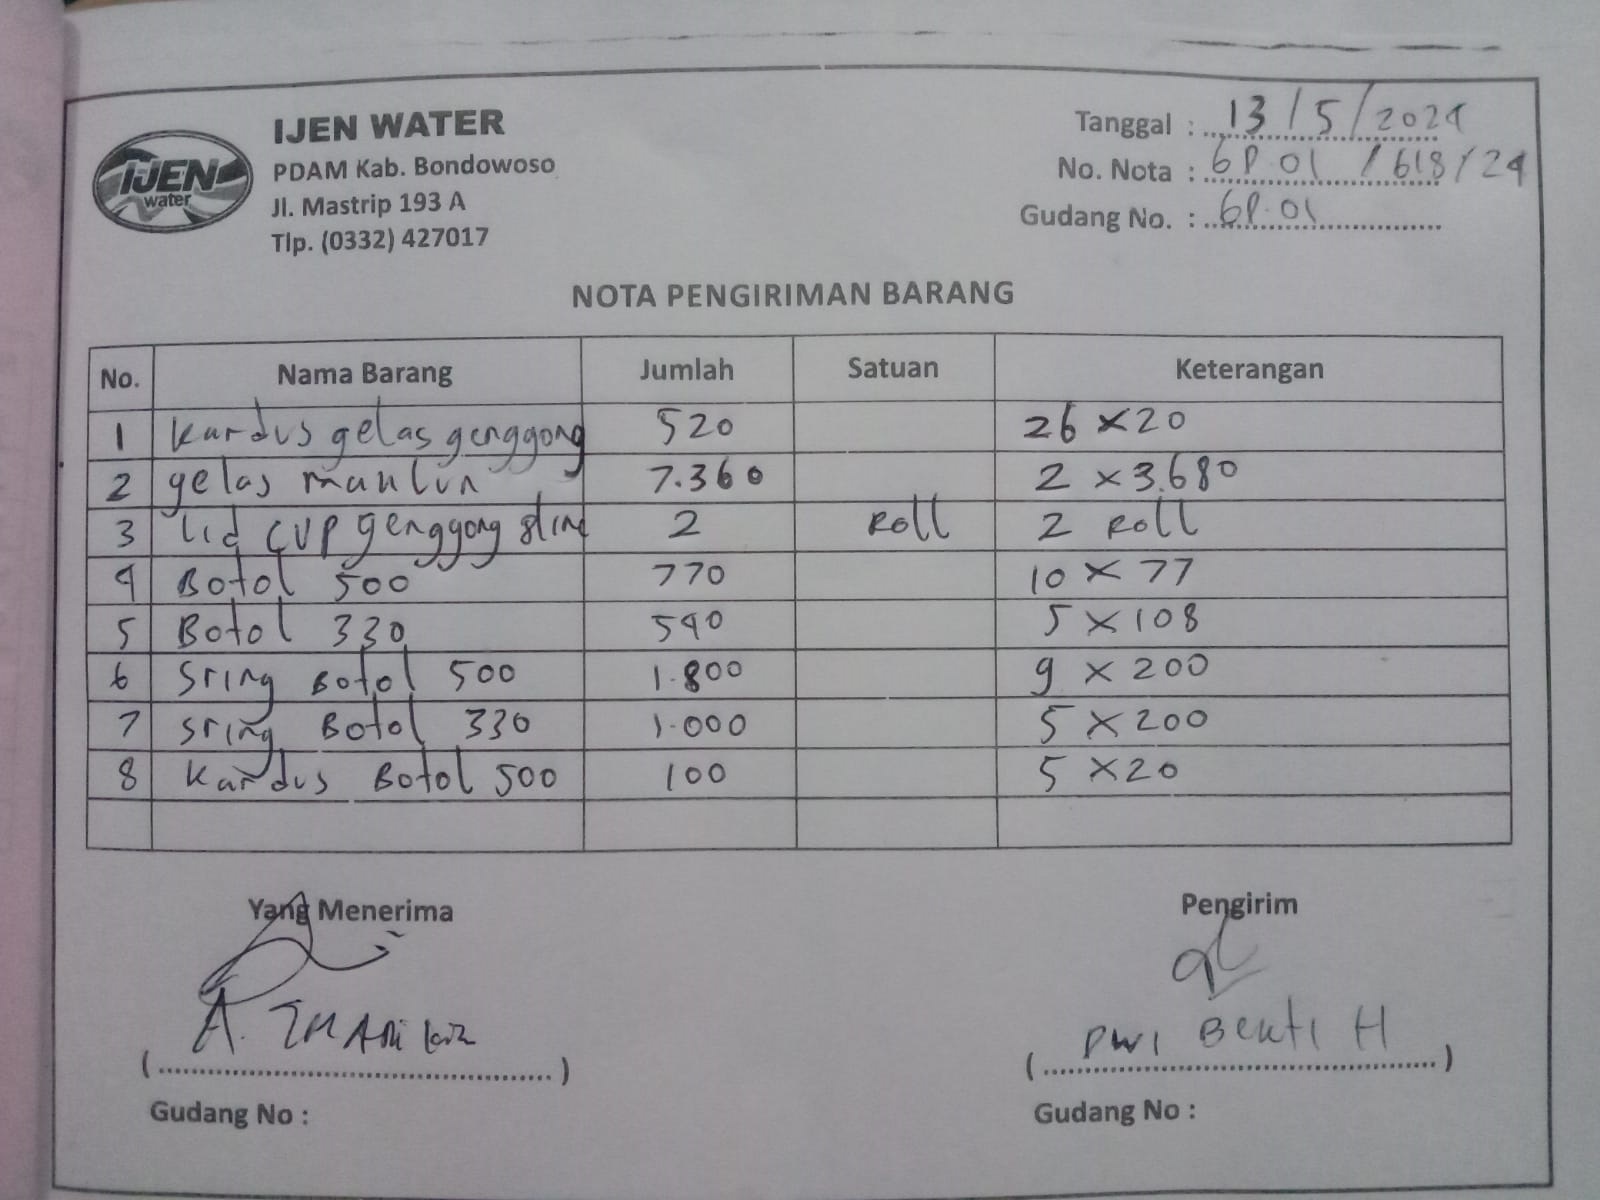 IJEN water
IJEN WATER
PDAM Kab. Bondowoso
Jl. Mastrip 193 A
Tlp. (0332) 427017
Tanggal : 13/5/2024
No. Nota : 6P.01 /618/24
Gudang No. : 6P.01
NOTA PENGIRIMAN BARANG
No. Nama Barang Jumlah Satuan Keterangan
1 Kardus gelas genggong 520 26 x 20
2 gelas 7.360 2 x 3.680
3 Lid CUP genggong 2 Roll 2 Roll
4 Botol 500 770 10 x 77
5 Botol 330 540 5 x 108
6 Sring Botol 500 1.800 9 x 200
7 Sring Botol 330 1.000 5 x 200
8 Kardus Botol 500 100 5 x 20
Yang Menerima Pengirim
A. DWI H
(..............................) (..............................)
Gudang No : Gudang No :